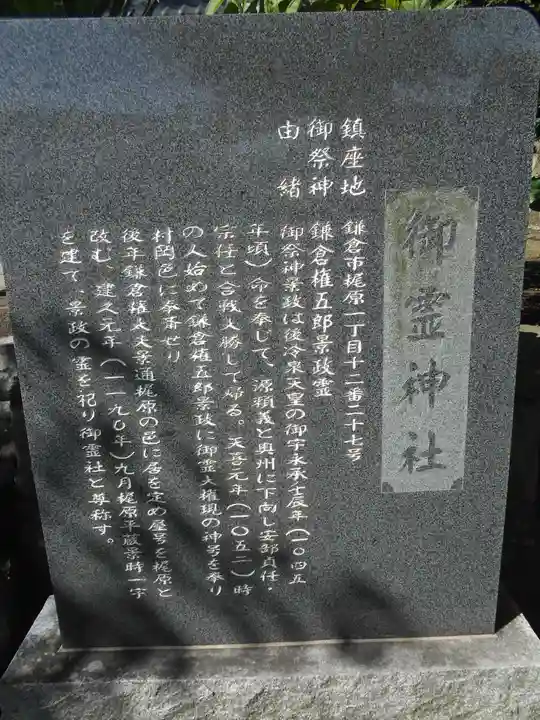 御霊神社
鎮座地　鎌倉市梶原一丁目十二番二十七号
御祭神　鎌倉権五郎景政霊
由　緒　御祭神景政は後冷泉天皇の御宇永承壬辰年（一〇四五
年頃）命を奉じて、源頼義と奥州に下向し安部貞任・
宗任と合戦大勝して帰る。天喜元年（一〇五二）時
の人始めて鎌倉権五郎景政に御霊大権現の神号を奉り
村岡邑に奉斎せり
後年鎌倉権太夫景通梶原の邑に居を定め屋号を梶原と
改む、建久元年（一一九〇年）九月梶原平蔵景時一宇
を建て、景政の霊を祀り御霊社と尊称す。